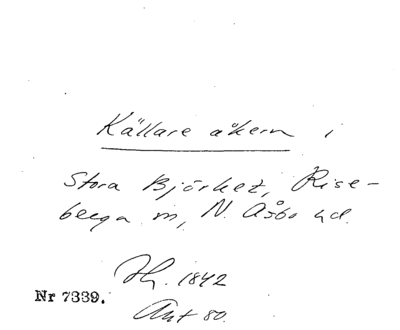 Källare åkern i
Stora Björket, Rise-
berga sn, N. Åsbo hd.
1842
Nr 7339.
Akt 80.